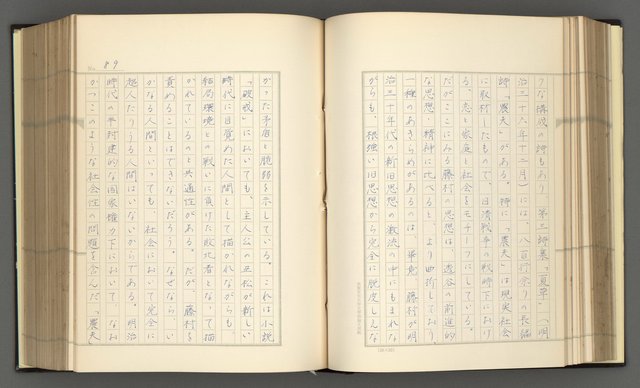 うな構成の詩もあり、第三詩集「夏草」（明
治三十一年十二月）には、八百行余りの長編
詩「農夫」がある。特に「農夫」は現実社会
に取材したもので、日清戦争の戦時下におけ
る、恋と家庭と社会をモチーフにしている。
だがここにみる藤村の思想は、透谷の前進的
な思想・精神に比べると、より
一種のあきらめがあるのは、畢竟、藤村が明
治三十年代の新旧思想の激流の中にもまれな
がらも、根強い旧思想から完全に脱皮しえな
かった矛盾と脆弱を示している。これは小説
「破戒」においても、主人公の丑松が新しい
時代に目覚めた人間として描かれながらも、
結局環境との戦いに負けた敗北者となって描
かれているのと共通性がある。だが、藤村を
責めることはできないだろう。なぜなら、い
かなる人間といっても、社会において完全に
超人たりうる人間はいないからである。明治
時代の半封建的な国家権力下において、なお
かつこのような社会性の問題を含んだ「農夫
No. 89